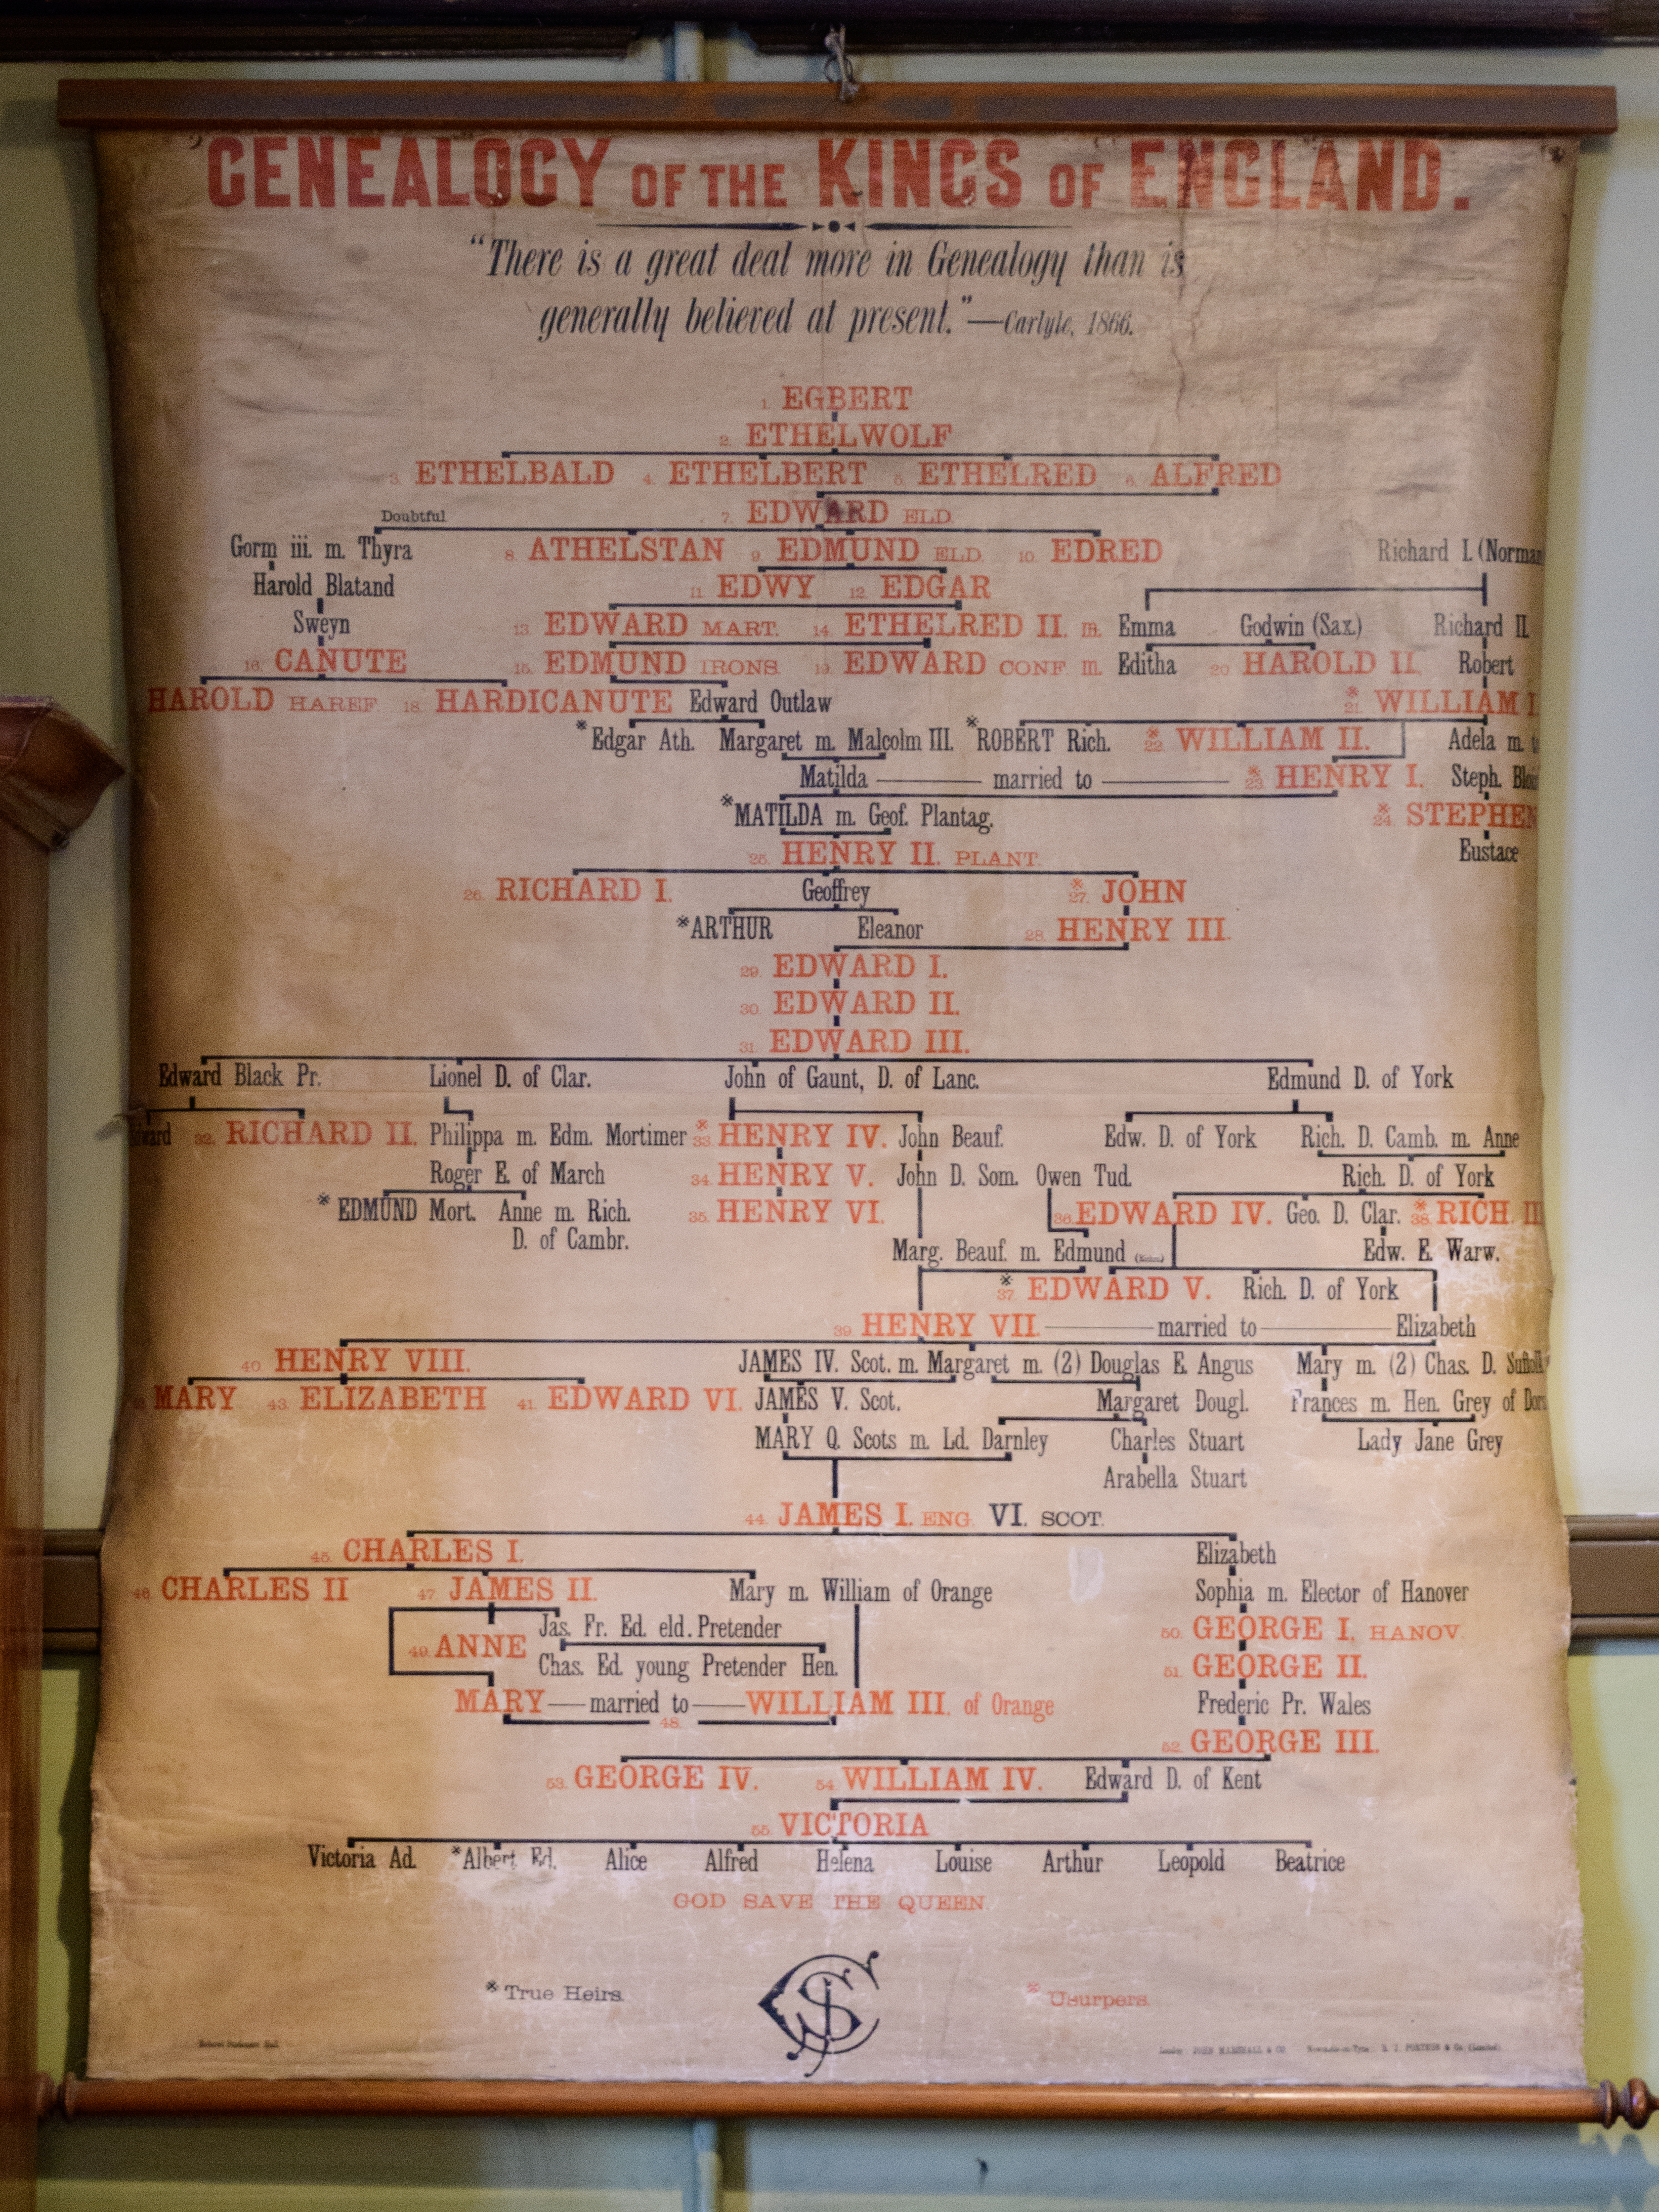 GENEALOGY OF THE KINGS OF ENGLAND.
"There is a great deal more in Genealogy than is
generally believed at present."—Carlyle, 1866.
1. EGBERT
2. ETHELWOLF
3. ETHELBALD 4. ETHELBERT 5. ETHELRED 6. ALFRED
Doubtful 7. EDWARD ELD.
Gorm iii. m. Thyra 8. ATHELSTAN 9. EDMUND ELD. 10. EDRED Richard I. (Norman
Harold Blatand 11. EDWY 12. EDGAR
Sweyn 13. EDWARD MART. 14. ETHELRED II. m. Emma Godwin (Sax.) Richard II.
16. CANUTE 15. EDMUND IRONS. 19. EDWARD CONF. m. Editha 20. HAROLD II. Robert
HAROLD HAREF. 18. HARDICANUTE Edward Outlaw ※ 21. WILLIAM I.
※Edgar Ath. Margaret m. Malcolm III. ※ROBERT Rich. ※ 22. WILLIAM II. Adela m.
Matilda — married to — ※ 23. HENRY I. Steph.
※MATILDA m. Geof. Plantag. ※ 24. STEPHEN
25. HENRY II. PLANT. Eustace
26. RICHARD I. Geoffrey ※ 27. JOHN
※ARTHUR Eleanor 28. HENRY III.
29. EDWARD I.
30. EDWARD II.
31. EDWARD III.
Edward Black Pr. Lionel D. of Clar. John of Gaunt, D. of Lanc. Edmund D. of York
32. RICHARD II. Philippa m. Edm. Mortimer ※ 33. HENRY IV. John Beauf. Edw. D. of York Rich. D. Camb. m. Anne
Roger E. of March 34. HENRY V. John D. Som. Owen Tud. Rich. D. of York
※ EDMUND Mort. Anne m. Rich. 35. HENRY VI. 36. EDWARD IV. Geo. D. Clar. ※ 38. RICH. III
D. of Cambr. Marg. Beauf. m. Edmund Edw. E. Warw.
※ 37. EDWARD V. Rich. D. of York
39. HENRY VII. — married to — Elizabeth
40. HENRY VIII. JAMES IV. Scot. m. Margaret m. (2) Douglas E. Angus Mary m. (2) Chas. D. Suffolk
MARY 43. ELIZABETH 41. EDWARD VI. JAMES V. Scot. Margaret Dougl. Frances m. Hen. Grey of
MARY Q. Scots m. Ld. Darnley Charles Stuart Lady Jane Grey
Arabella Stuart
44. JAMES I. ENG. VI. SCOT.
45. CHARLES I. Elizabeth
46. CHARLES II 47. JAMES II. Mary m. William of Orange Sophia m. Elector of Hanover
Jas. Fr. Ed. eld. Pretender 50. GEORGE I. HANOV.
49. ANNE
Chas. Ed. young Pretender Hen. 51. GEORGE II.
MARY — married to — WILLIAM III. of Orange Frederic Pr. Wales
48.
52. GEORGE III.
53. GEORGE IV. 54. WILLIAM IV. Edward D. of Kent
55. VICTORIA
Victoria Ad. ※Albert Ed. Alice Alfred Helena Louise Arthur Leopold Beatrice
GOD SAVE THE QUEEN
※ True Heirs. ※ Usurpers.
London JOHN MARSHALL & CO